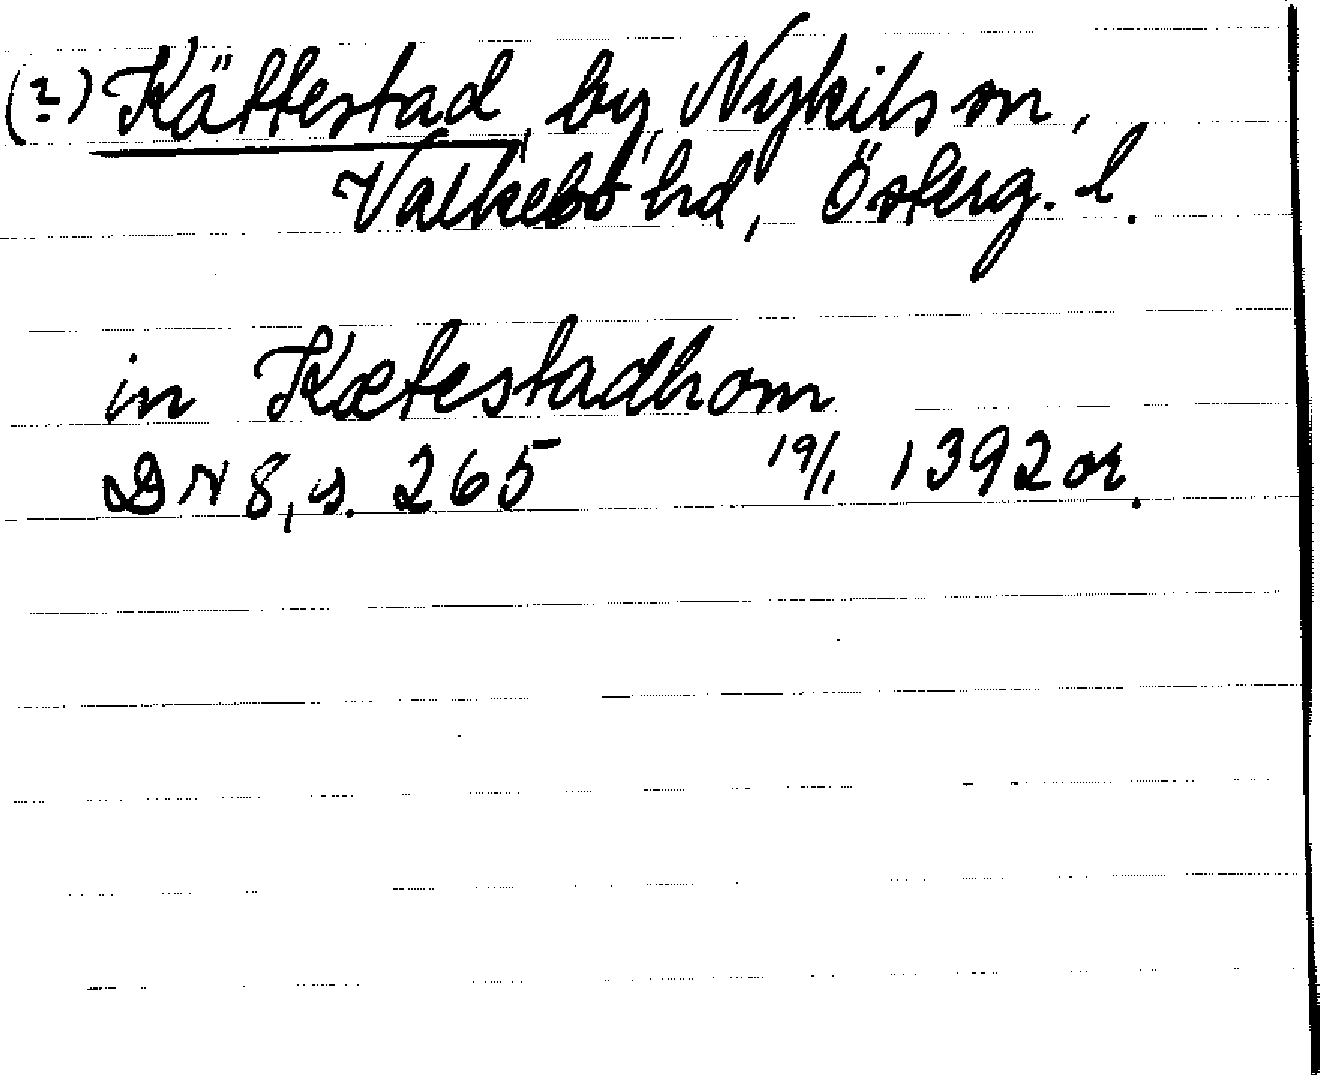 (?) Kättestad, by, Nykils sn,
Valkebo hd, Österg. l.
in Kætestadhom
DN 8, s. 265 19/1 1392 or.